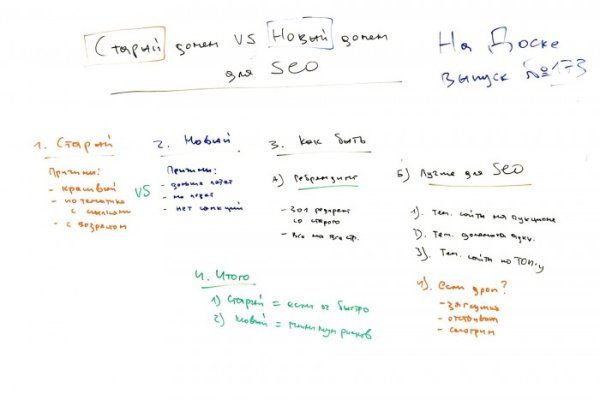 Старый домен VS Новый домен
для SEO
На Доске
Выпуск №173
1. Старый
Причины:
- красивый
- по тематике
с ссылками
- с возрастом
VS
2. Новый
Причины:
- дольше
- нет санкций
3. Как быть
А) Ребрендинг
- 301 редирект
со старого
- Все на все стр.
Б) Лучше для SEO
1). Тем. сайты на аукционе
2). Тем. домены аукц.
3). Тем. сайты по ТОП-у
4). Если дроп?
- заглушка
- отстаиваем
- смотрим
4. Итого
1) Старый = если ок быстро
2) Новый = минимум рисков